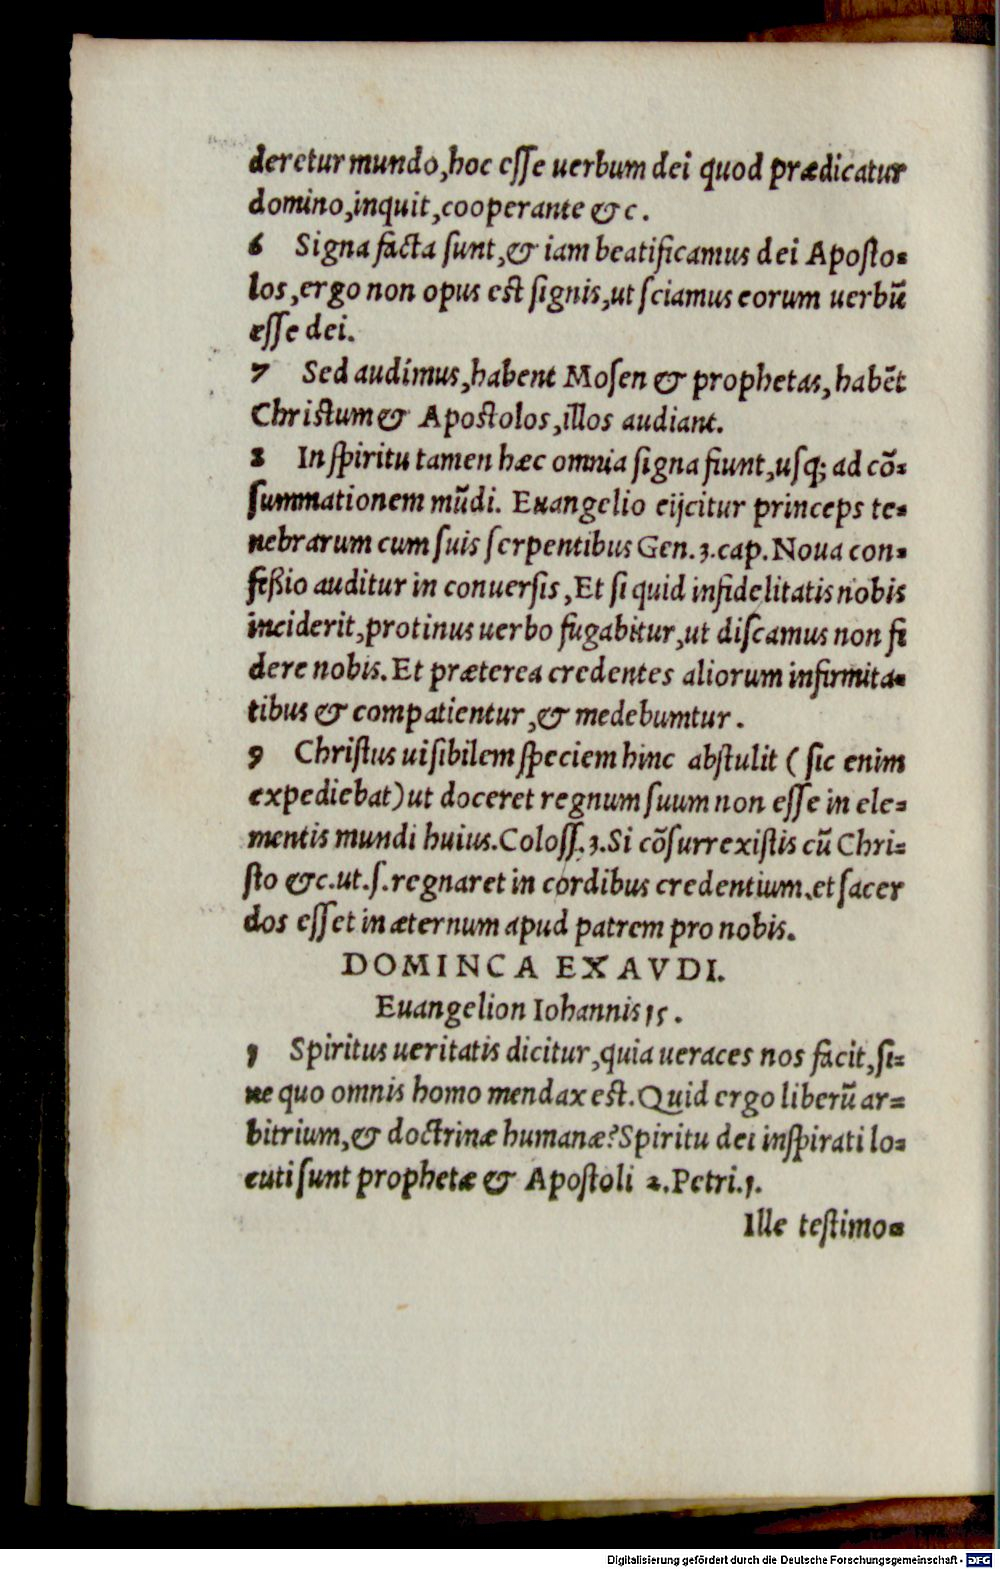 deretur mundo, hoc esse uerbum dei quod prædicatur
domino, inquit, cooperante &c.
6 Signa facta sunt, & iam beatificamus dei Aposto-
los, ergo non opus est signis, ut sciamus eorum uerbū
esse dei.
7 Sed audimus, habent Mosen & prophetas, habēt
Christum & Apostolos, illos audiant.
8 In spiritu tamen hæc omnia signa fiunt, usq; ad cō-
summationem mūdi. Euangelio eijcitur princeps te-
nebrarum cum suis serpentibus Gen. 3. cap. Noua con-
feßio auditur in conuersis, Et si quid infidelitatis nobis
inciderit, protinus uerbo fugabitur, ut discamus non fi
dere nobis. Et præterea credentes aliorum infirmita-
tibus & compatientur, & medebumtur.
9 Christus uisibilem speciem hinc abstulit ( sic enim
expediebat) ut doceret regnum suum non esse in ele-
mentis mundi huius. Coloss. 3. Si cōsurrexistis cū Chri-
sto &c. ut. s. regnaret in cordibus credentium, et sacer
dos esset in æternum apud patrem pro nobis.
DOMINCA EXAVDI.
Euangelion Iohannis 15.
1 Spiritus ueritatis dicitur, quia ueraces nos facit, si-
ne quo omnis homo mendax est. Quid ergo liberū ar-
bitrium, & doctrinæ humanæ? Spiritu dei inspirati lo-
cuti sunt prophetæ & Apostoli 2. Petri. 1.
Ille testimo-
Digitalisierung gefördert durch die Deutsche Forschungsgemeinschaft - DFG